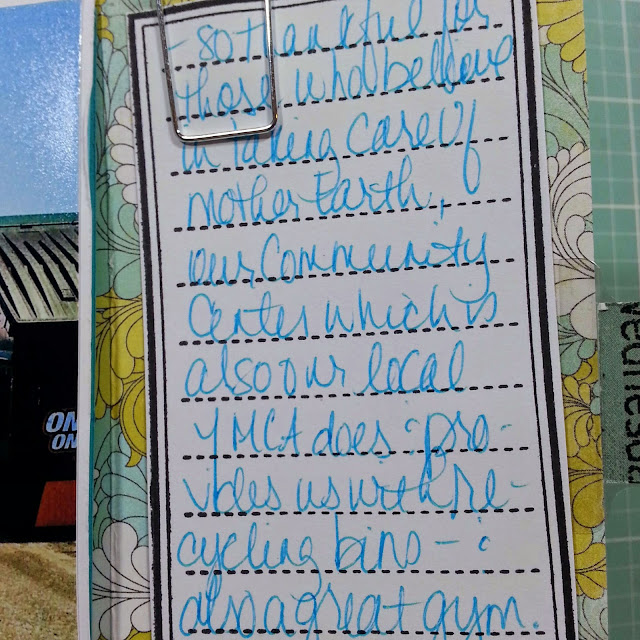 - so thankful for
those who believe
in taking care of
mother Earth,
our Community
Center which is
also our local
YMCA does : pro-
vides us with re-
cycling bins - :
also a great gym.
ON
ON
Wednesday